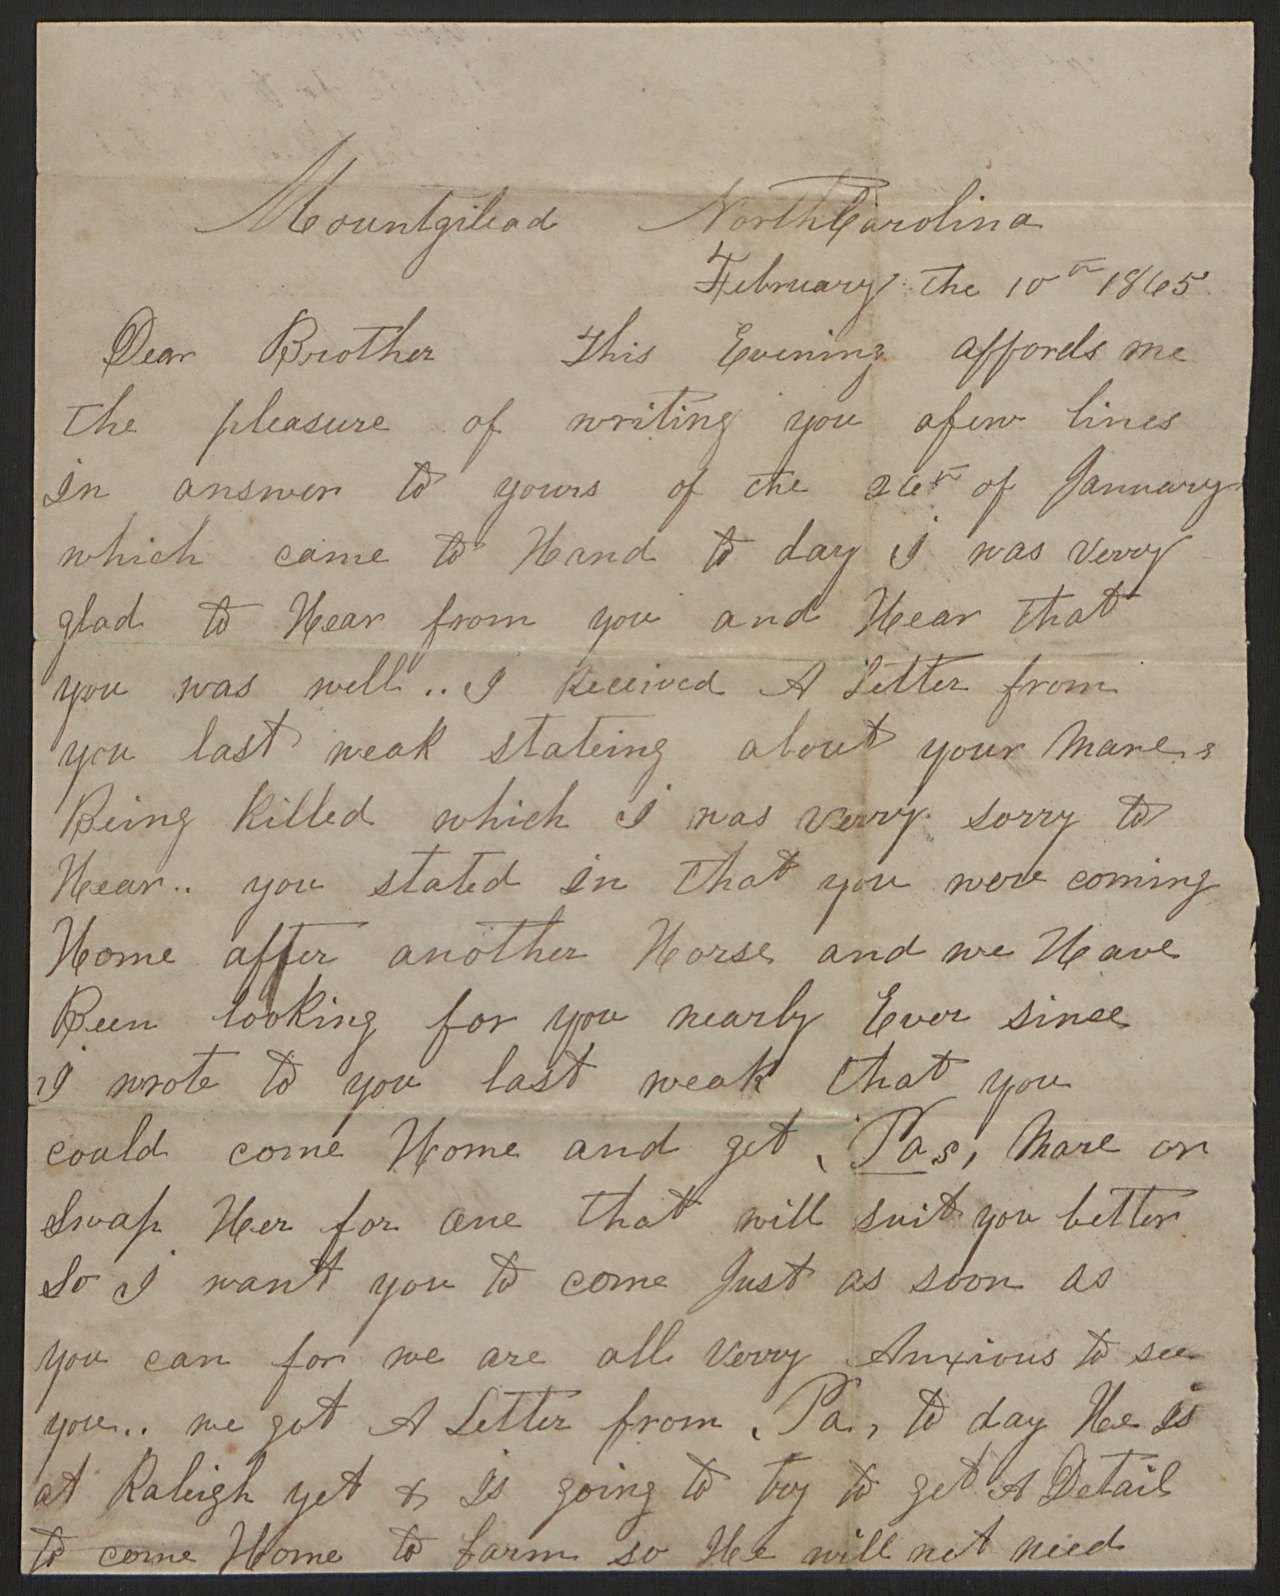 Mountgilead North Carolina
February the 10th 1865
Dear Brother This Evening affords me
the pleasure of writing you afew lines
in answer to yours of the 26th of January
which came to Hand to day I was verry
glad to Hear from you and Hear that
you was well.. I Received A Letter from
you last weak stateing about your Mare s
Being Killed which I was verry sorry to
Hear.. you stated in that you were coming
Home after another Horse and we Have
Been looking for you nearly Ever since
I wrote to you last weak that you
could come Home and get , Pas, Mare or
Swap Her for one that will suit you better
So I want you to come Just as soon as
you can for we are all verry Anxious to see
you.. we got A Letter from , Pa, to day He is
at Raleigh yet & is going to try to get A Detail
to come Home to farm so He will not need